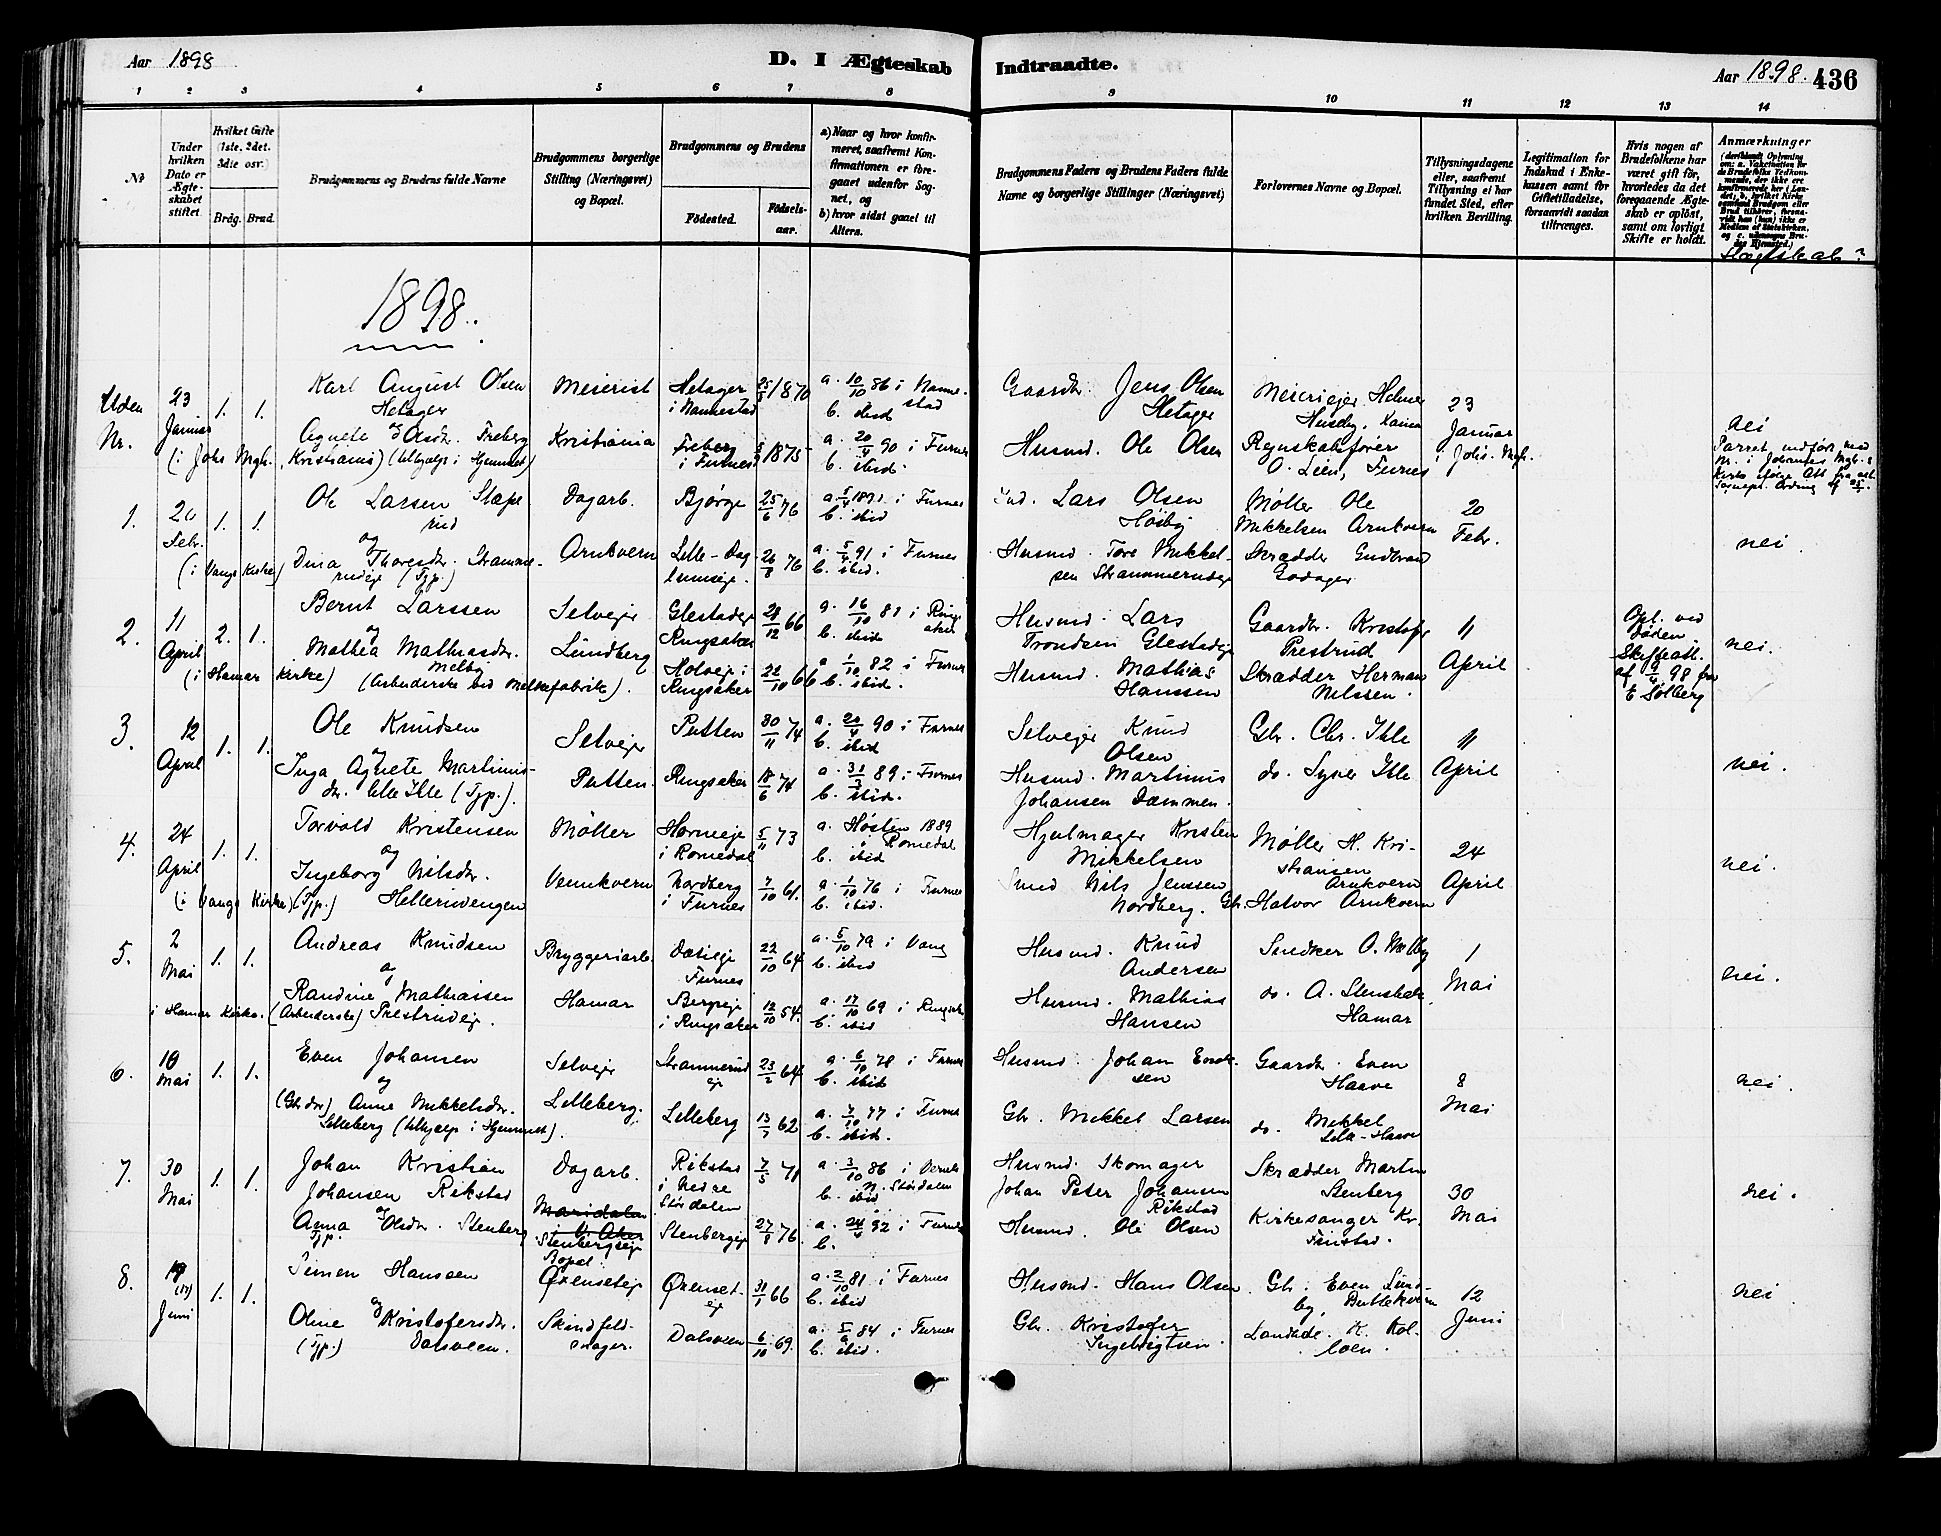 Aar 1898
D. I Ægteskab
1 2 3 4 5 6 7 8
No
Under hvilken Dato er Ægteskabet stiftet.
Hvilket Gifte (1ste. 2det. 3die osv.)
Brdg. Brud.
Brudgommens og Brudens fulde Navne
Brudgommens borgerlige Stilling (Næringsvei) og Bopæl.
Brudgommens og Brudens
Fødested.
Fødselsaar.
a) Naar og hvor konfirmeret, saafremt Konfirmationen er foregaaet udenfor Sognet, og
b) hvor sidst gaaet til Alters.
1898.
Uden Nr. 23 Januar 1. 1.
Karl August Olsen
Hetager
Meierist
Hetager i Nannestad
25/ 1870
a. 10/10 86 i Nannestad
b. ibid
og
Agnete Olsdr. Freberg
(i Johs Mgh. Kristiania) (tilhjælp i Hjemmet)
Kristiania
Freberg i Furnes
1875
a. 20/4 90 i Furnes
b. ibid.
1. 20 Febr. 1. 1.
Ole Larsen Stape
rud
Dagarb.
Bjørge
25/6 76
a. 5/4 1891 i Furnes
b. ibid
og
Dina Thoresdr. Stramme-
rudeje (Tjp.)
(i Vangs Kirke)
Arnkvern
Lille-Dag
lunseje.
26/8 76
a. 5/4 91 i Furnes
b. ibid.
2. 11 April 2. 1.
Bernt Larssen
Selvejer
Glestadeje
Ringsaker
28/12 66
a. 16/10 81 i Ringsaker
b. ibid
og
Mathea Mathiasdr.
Melby
(i Hamar Kirke) (Arbeiderske ved Melkefabrik).
Lundberg
Holveje i
Ringsaker
22/10 66
a. 1/10 82 i Furnes
b. ibid.
3. 12 April 1. 1.
Ole Knudsen
Selvejer
Putten
30/11 74
a. 20/4 90 i Furnes
b. ibid
og
Inga Agnete Martinis-
dr. lille Ihle (Tjp.).
Putten.
Ringsaker
18/6 74
a. 31/3 89 i Furnes
b. ibid.
4. 24 April 1. 1.
Torvald Kristensen
Møller
Horneeje
i Romedal
5/11 73
a. Høsten 1889
i Romedal
b. ibid
og
Ingeborg Nilsdr.
(i Vangs Kirke) (Tjp.) Hellerudengen
Vennkvern
Nordberg
i Furnes
7/10 61.
a. 1/10 76 i Furnes
b. ibid.
5. 2 Mai 1. 1.
Andreas Knudsen
Bryggeriarb.
Dæsieje
Furnes
22/10 64
a. 5/10 79 i Vang
b. ibid
og
Randine Mathiassen
i Hamar Kirke. (Arbeiderske) Prestrudeje.
Hamar
Bergeje
i Ringsaker
12/10 54.
a. 17/10 69 i Ringsaker
b. ibid
6. 10 Mai 1. 1.
Even Johansen
Selvejer
Strammerud
eje
23/2 64
a. 6/10 78 i Furnes
b. ibid
og
(Gbrdtr) Anne Mikkelsdr.
Lilleberg (tilhjælp i Hjemmet).
Lilleberg.
Lilleberg
13/7 62
a. 7/10 77 i Furnes
b. ibid.
7. 30 Mai 1. 1.
Johan Kristian
Johansen Rikstad
Dagarb.
Rikstad
i Nedre
Stördalen
7/5 71
a. 3/10 86 i
N. Stördalen
b. ibid
og
Anna Olsdr. Stenberg
Tjp.
Maridalen
i V. Aker
Stenbergseje
Bopæl:
Stenbergeje
27/8 76.
a. 24/4 92 i Furnes
b.
8. Juni 1. 1.
Simen Hanssen
Øxenseteje
Øxenset-
eje
31/1 66
a. 2/10 81 i Furnes
b. ibid
og
Oline Kristofersdr.
(Tjp.) Dalsveen.
Skindfeld-
mager.
Dalsveen
6/10 69.
a. 5/ 84 i Furnes
b. ibid.
Indtraadte.
Aar 1898. 436
9 10 11 12 13 14
Brudgommens Faders og Brudens Faders fulde Navne og borgerlige Stillinger (Næringsvei)
Forlovernes Navne og Bopæl.
Tillysningsdagene eller, saafremt Tillysning ei har fundet Sted, efter hvilken Bevilling.
Legitimation for Indskud i Enkekassen samt for Giftetilladelse, forsaavidt saadan tiltrænges.
Hvis nogen af Brudefolkene har været gift før, hvorledes da det foregaaende Ægteskab er opløst, samt om lovligt Skifte er holdt.
Anmærkninger
Slægtskab?
Gaardbr. Jens Olsen
Hetager
Meieriejer Helmer
Husby,
23 Januar i Johs. Mgh.
nei
Husmd. Ole Olsen
Regnskabsfører
O. Lien, Furnes
Parret indført med
Nr. i Johannes Mgh.s
Kirke ifølge Att. fra
Ind. Lars Olsen
Hösby
Møller Ole
Mikkelsen Arnkvern
20 Febr.
nei.
Husmd. Tore Mikkel-
sen Strammerudeje
Skrædder Gudbrand
Godager
Husmd. Lars
Trondsen Glestadeje
Gaardbr. Kristofer
Prestrud
11 April
Opl. ved
døden
Skifteatt.
af 9/4 98 fra
E Solberg
nei.
Husmd. Mathias
Hanssen
Skrædder Herman
Nilssen.
Selvejer Knud
Olsen
Gbr. Chr. Ihle
11 April
nei.
Husmd. Martinus
Johansen Dammen.
do. Syver Ihle
Hjulmager Kristen
Mikkelsen
Møller H. Kri-
stiansen
Arnkvern
24 April
nei.
Smed Nils Jenssen
Nordberg.
Gbr. Halvor Arnkvern
Husmd. Knud
Andersen
Snedker O. Melby
1 Mai
nei.
Husmd. Mathias
Hansen
do. A. Stensbak
Hamar
Husmd. Johan Enok-
sen
Gaardbr. Even
Haave
8 Mai
nei.
Gbr. Mikkel Larsen
do. Mikkel
Lille-Haave
Husmd. Skomager
Johan Peter Johansen
Rikstad
Skrædder Martin
Stenberg
30 Mai
nei.
Husmd. Ole Olsen
Kirkesanger Kr.
Finstad.
Husmd. Hans Olsen
Gbr. Even Lund-
by, Buttekvern
12 Juni
nei.
Gbr. Kristofer
Ingebrigtsen.
Landhdl. K. Kol-
loen.